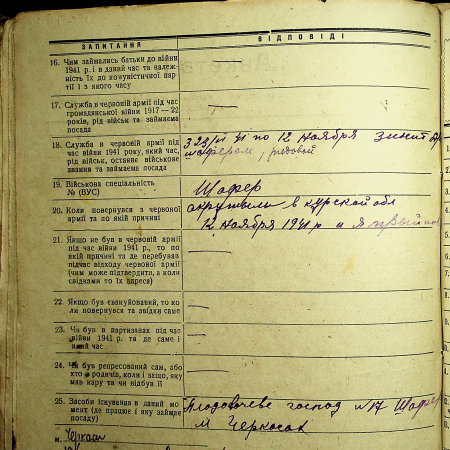 ЗАПИТАННЯ
ВІДПОВІДІ
16. Чим займались батьки до війни
1941 р. і в даний час та належ-
ність їх до комуністичної пар-
тії і з якого часу
17. Служба в червоній армії під час
громадянської війни 1917—22
років, рід військ та займаєма
посада
—
18. Служба в червоній армії під
час війни 1941 року, який час,
рід військ, останнє військове
звання та займаєма посада
по 12 Ноября зенит
шофером, рядовой
19. Військова спеціальність
№ (ВУС)
Шофер
20. Коли повернувся з червоної
армії та по якій причині
окружили в курской обл
12 Ноября 1941 р и я
21. Якщо не був в червоній армії
під час війни 1941 р., то по
якій причині та де перебував
підчас відходу червоної армії
(чим може підтвердити, а коли
свідками то їх адреса)
—
22. Якщо був евакуйований, то ко-
ли повернувся та звідки саме
—
23. Чи був в партизанах під час
війни 1941 р. та де саме і
який час
—
24. Чи був репресований сам, або
хто з родичів, коли і защо, яку
мав кару та чи відбув її
—
25. Засоби існування в даний мо-
мент (де працює і яку займає
посаду)
господ №17 Шофер
м Черкасах
м. Черкаси